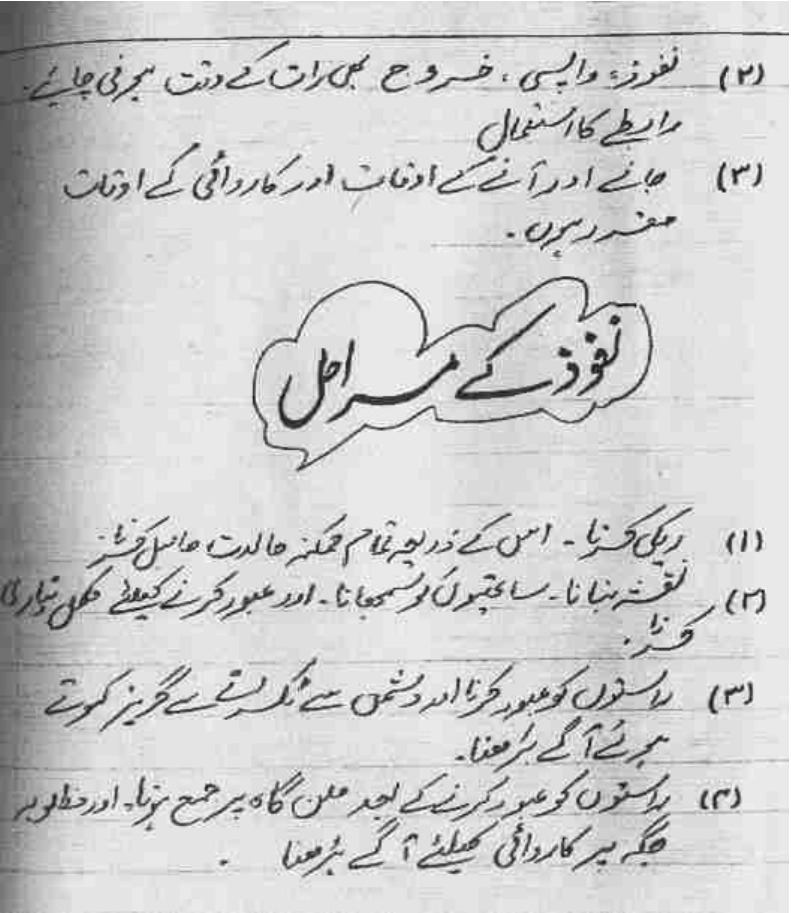 (۲) نفوذ، واپسی، خروج بھی رات کے وقت ہونی چاہیئے۔
رابطے کا استعمال
(۳) جانے اور آنے کے اوقات اور کاروائی کے اوقات
مقرر ہوں۔
نفوذ کے مراحل
(۱) ریکی کرنا۔ اس کے ذریعہ تمام ممکنہ حالات حاصل کرنا۔
(۲) نقشہ بنانا۔ ساتھیوں کو سمجھانا۔ اور عبور کرنے کیلئے مکمل تیاری
کرنا۔
(۳) راستوں کو عبور کرنا اور دشمن سے گریز کرتے
ہوئے آگے بڑھنا۔
(۴) راستوں کو عبور کرنے کے بعد ملن گاہ پر جمع ہونا۔ اور مطلوبہ
جگہ پر کاروائی کیلئے آگے بڑھنا۔